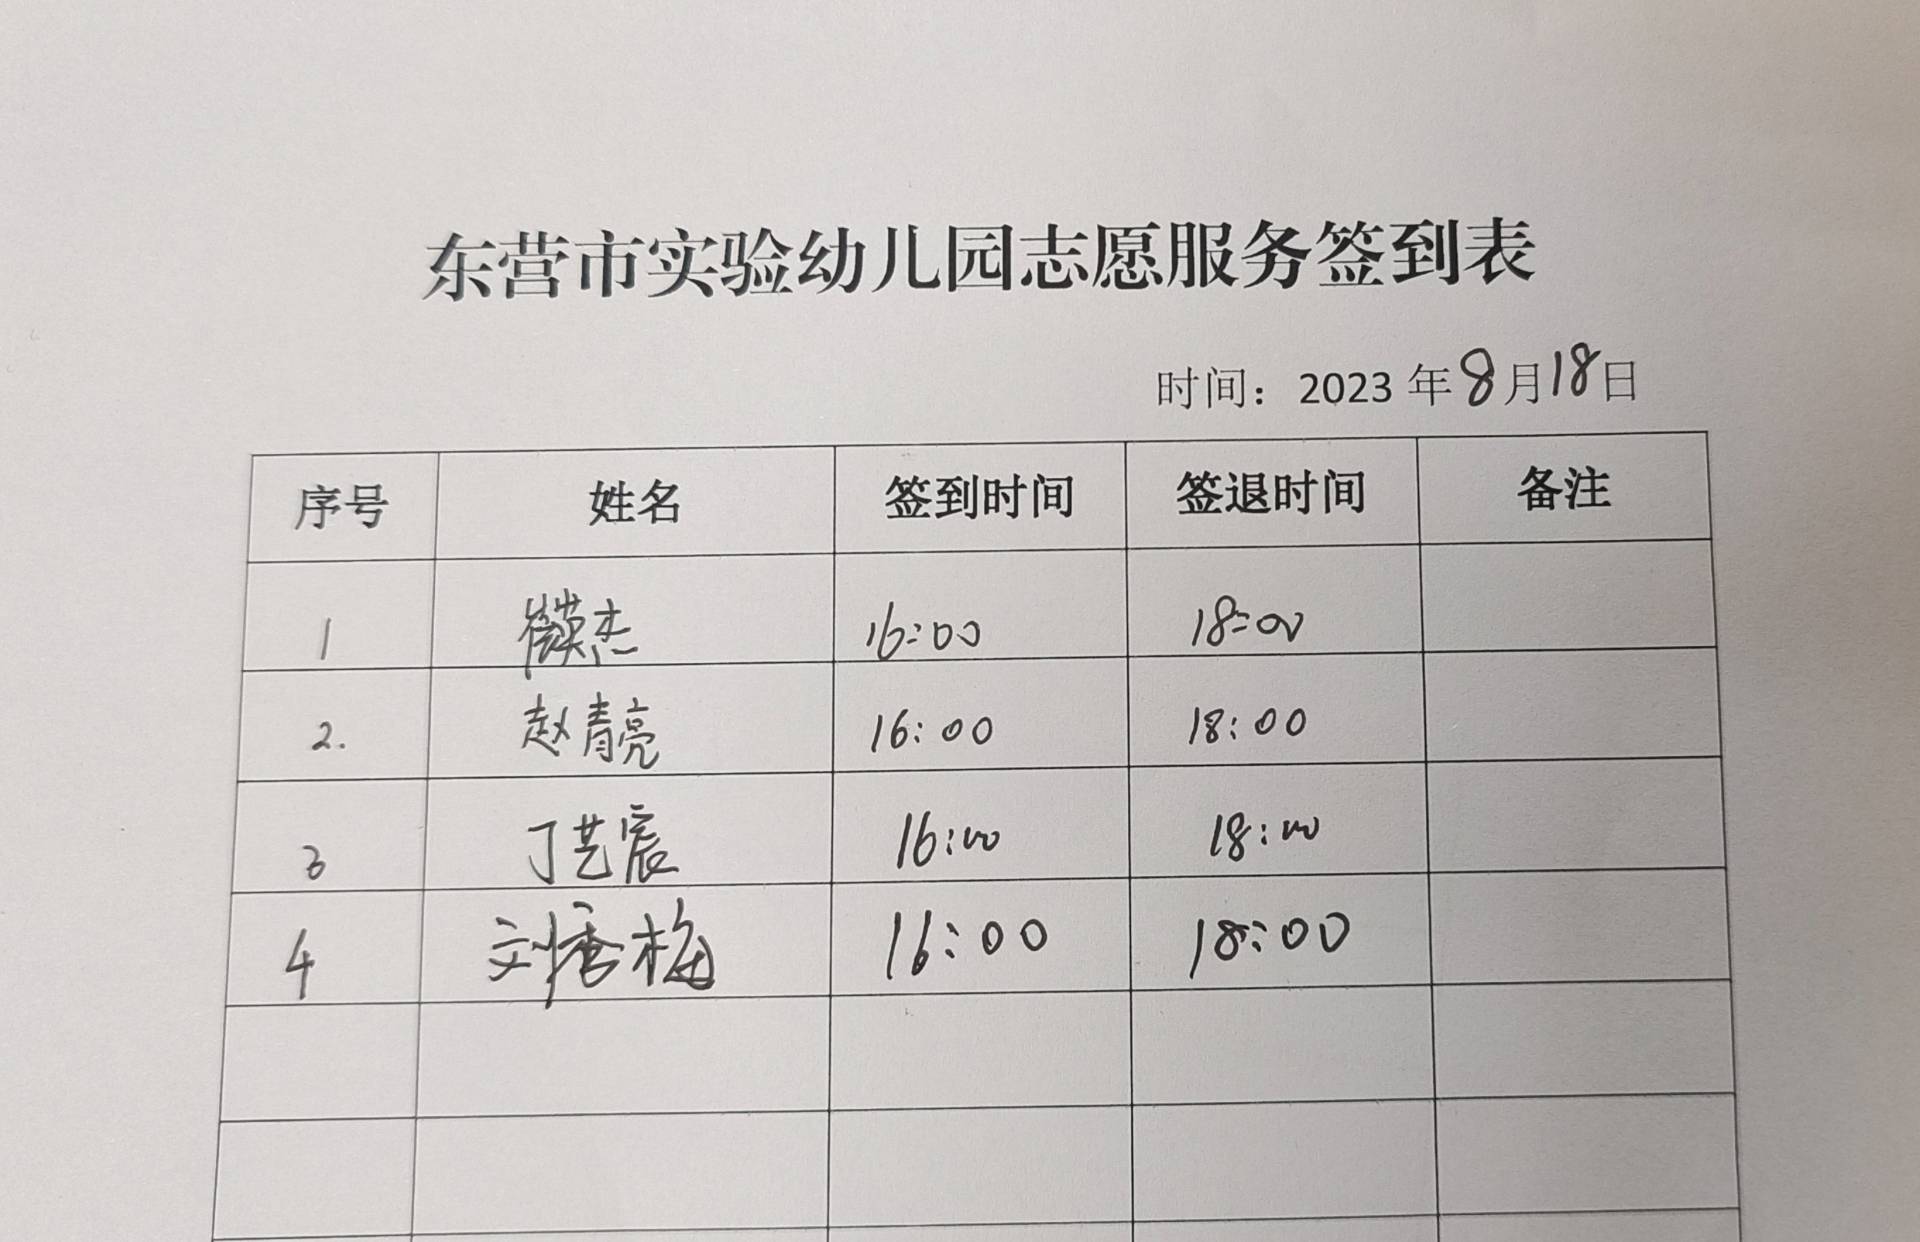 东营市实验幼儿园志愿服务签到表
时间：2023年8月18日
序号 姓名 签到时间 签退时间 备注
1 英杰 16:00 18:00
2. 赵青亮 16:00 18:00
3 丁艺宸 16:00 18:00
4 刘秀梅 16:00 18:00